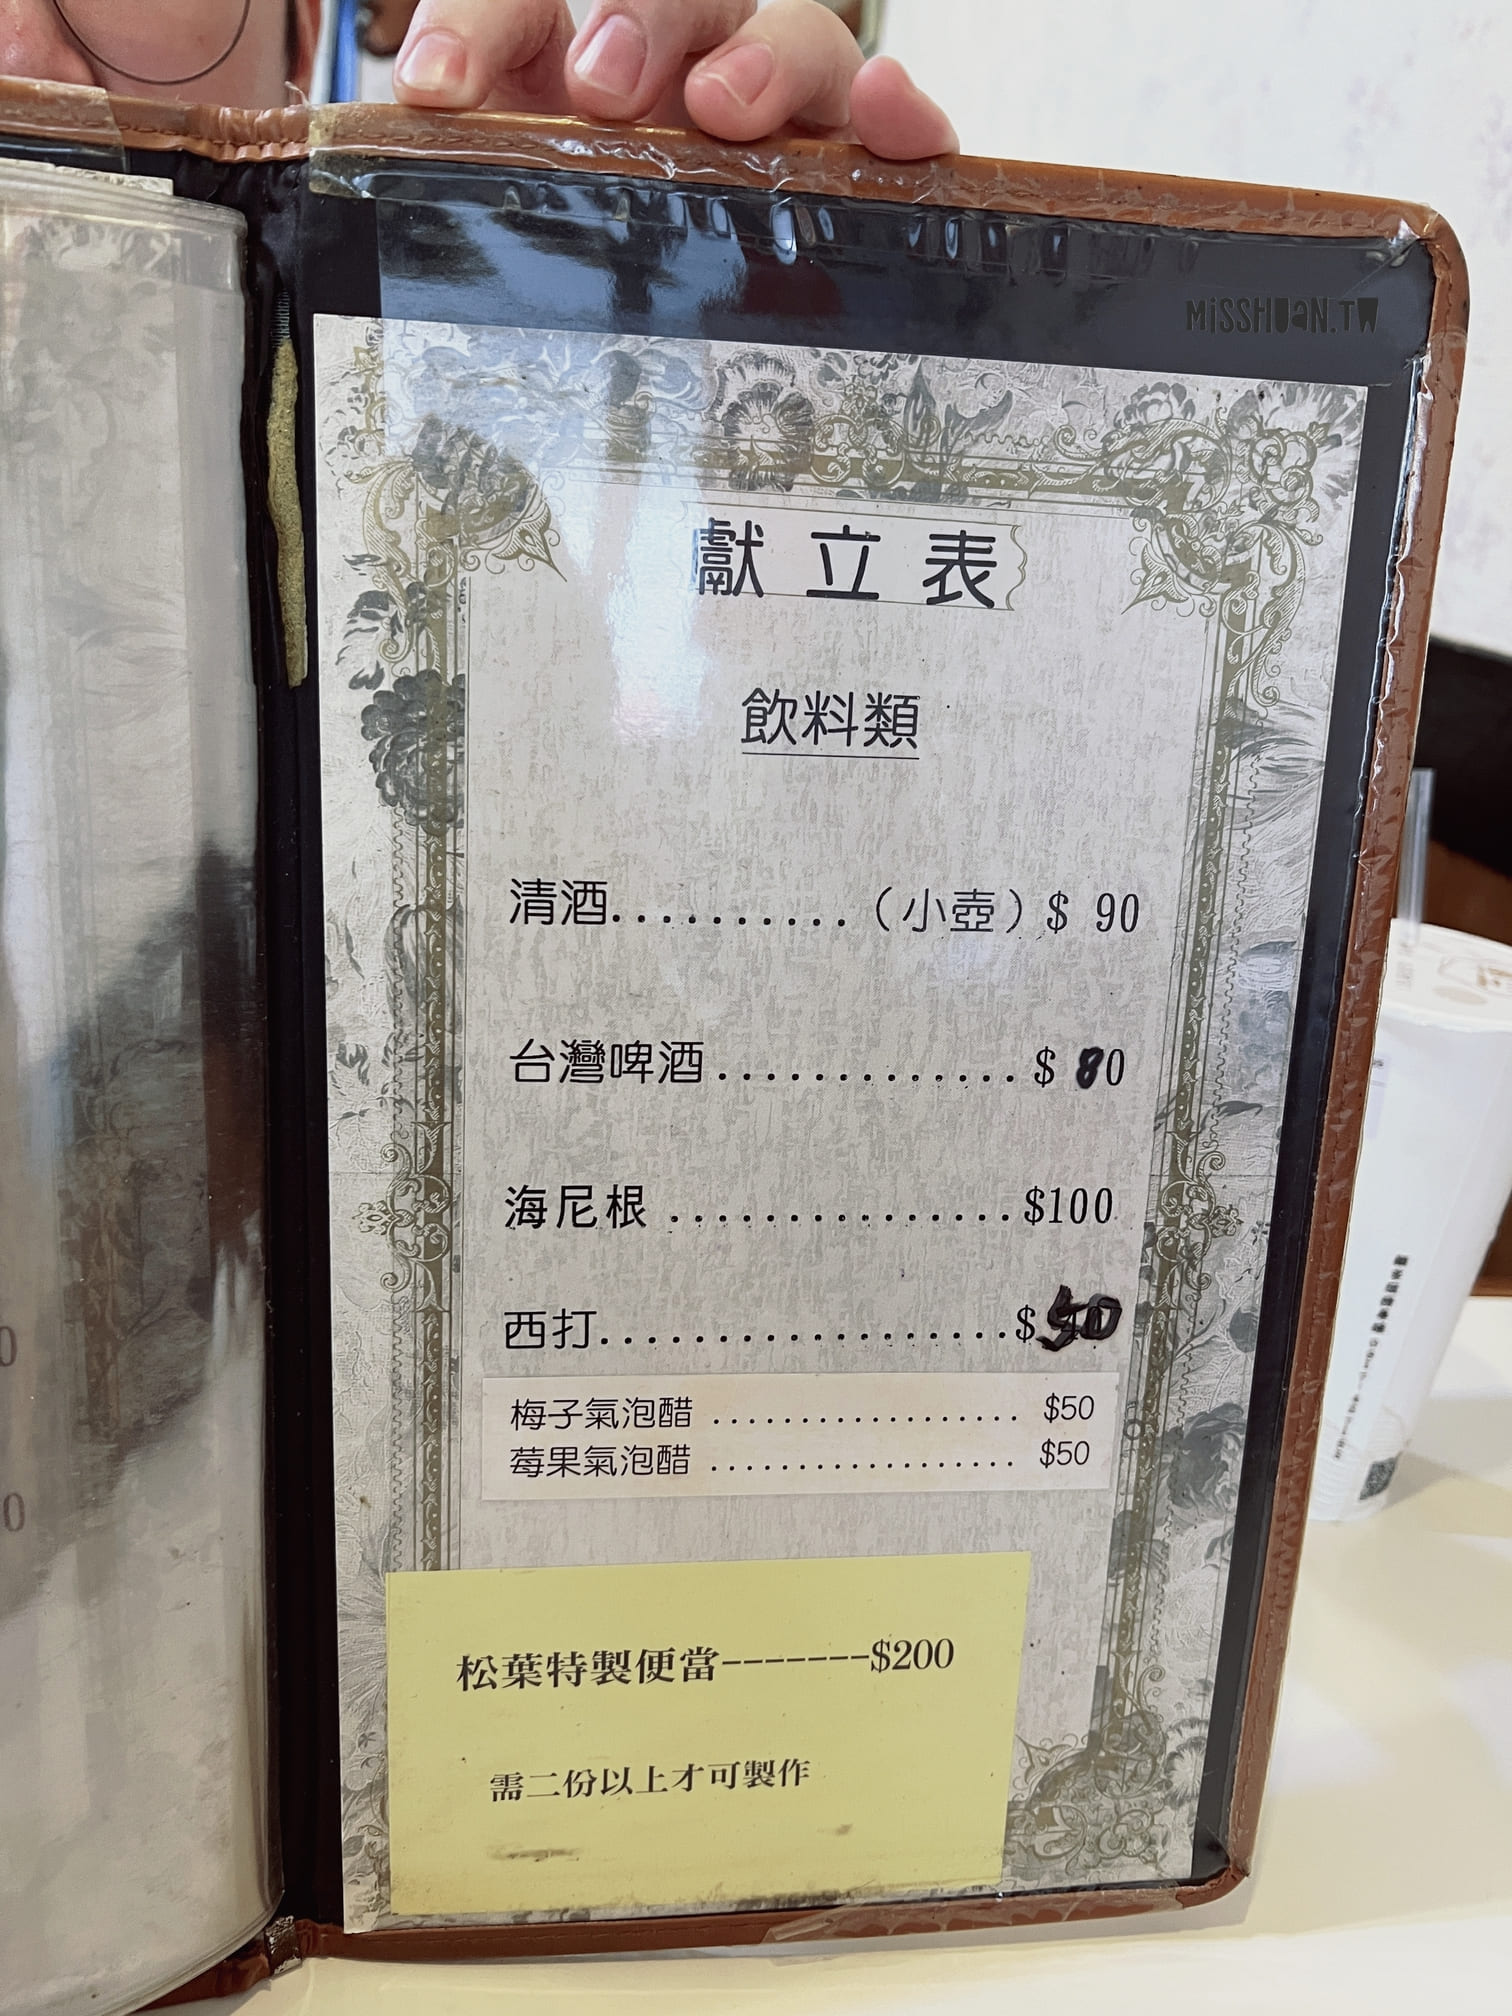 MiSSHUAN.TW
獻立表
飲料類
清酒..........（小壺）$ 90
台灣啤酒.............$ 80
海尼根 ...............$100
西打..................$50
梅子氣泡醋 ................... $50
莓果氣泡醋 ................... $50
松葉特製便當-------$200
需二份以上才可製作
0
0